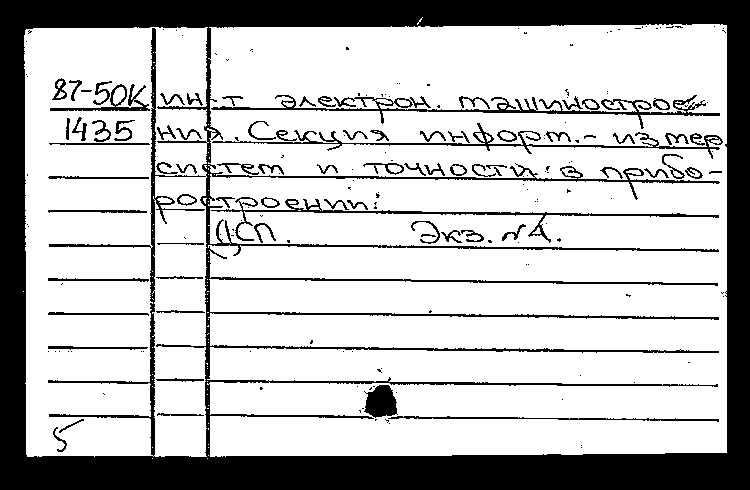 87-50К ин-т электрон. машинострое-
1435 ния. Секция информ.-измер.
систем и точности в прибо-
ростроении.
ДСП. Экз. №4.
5